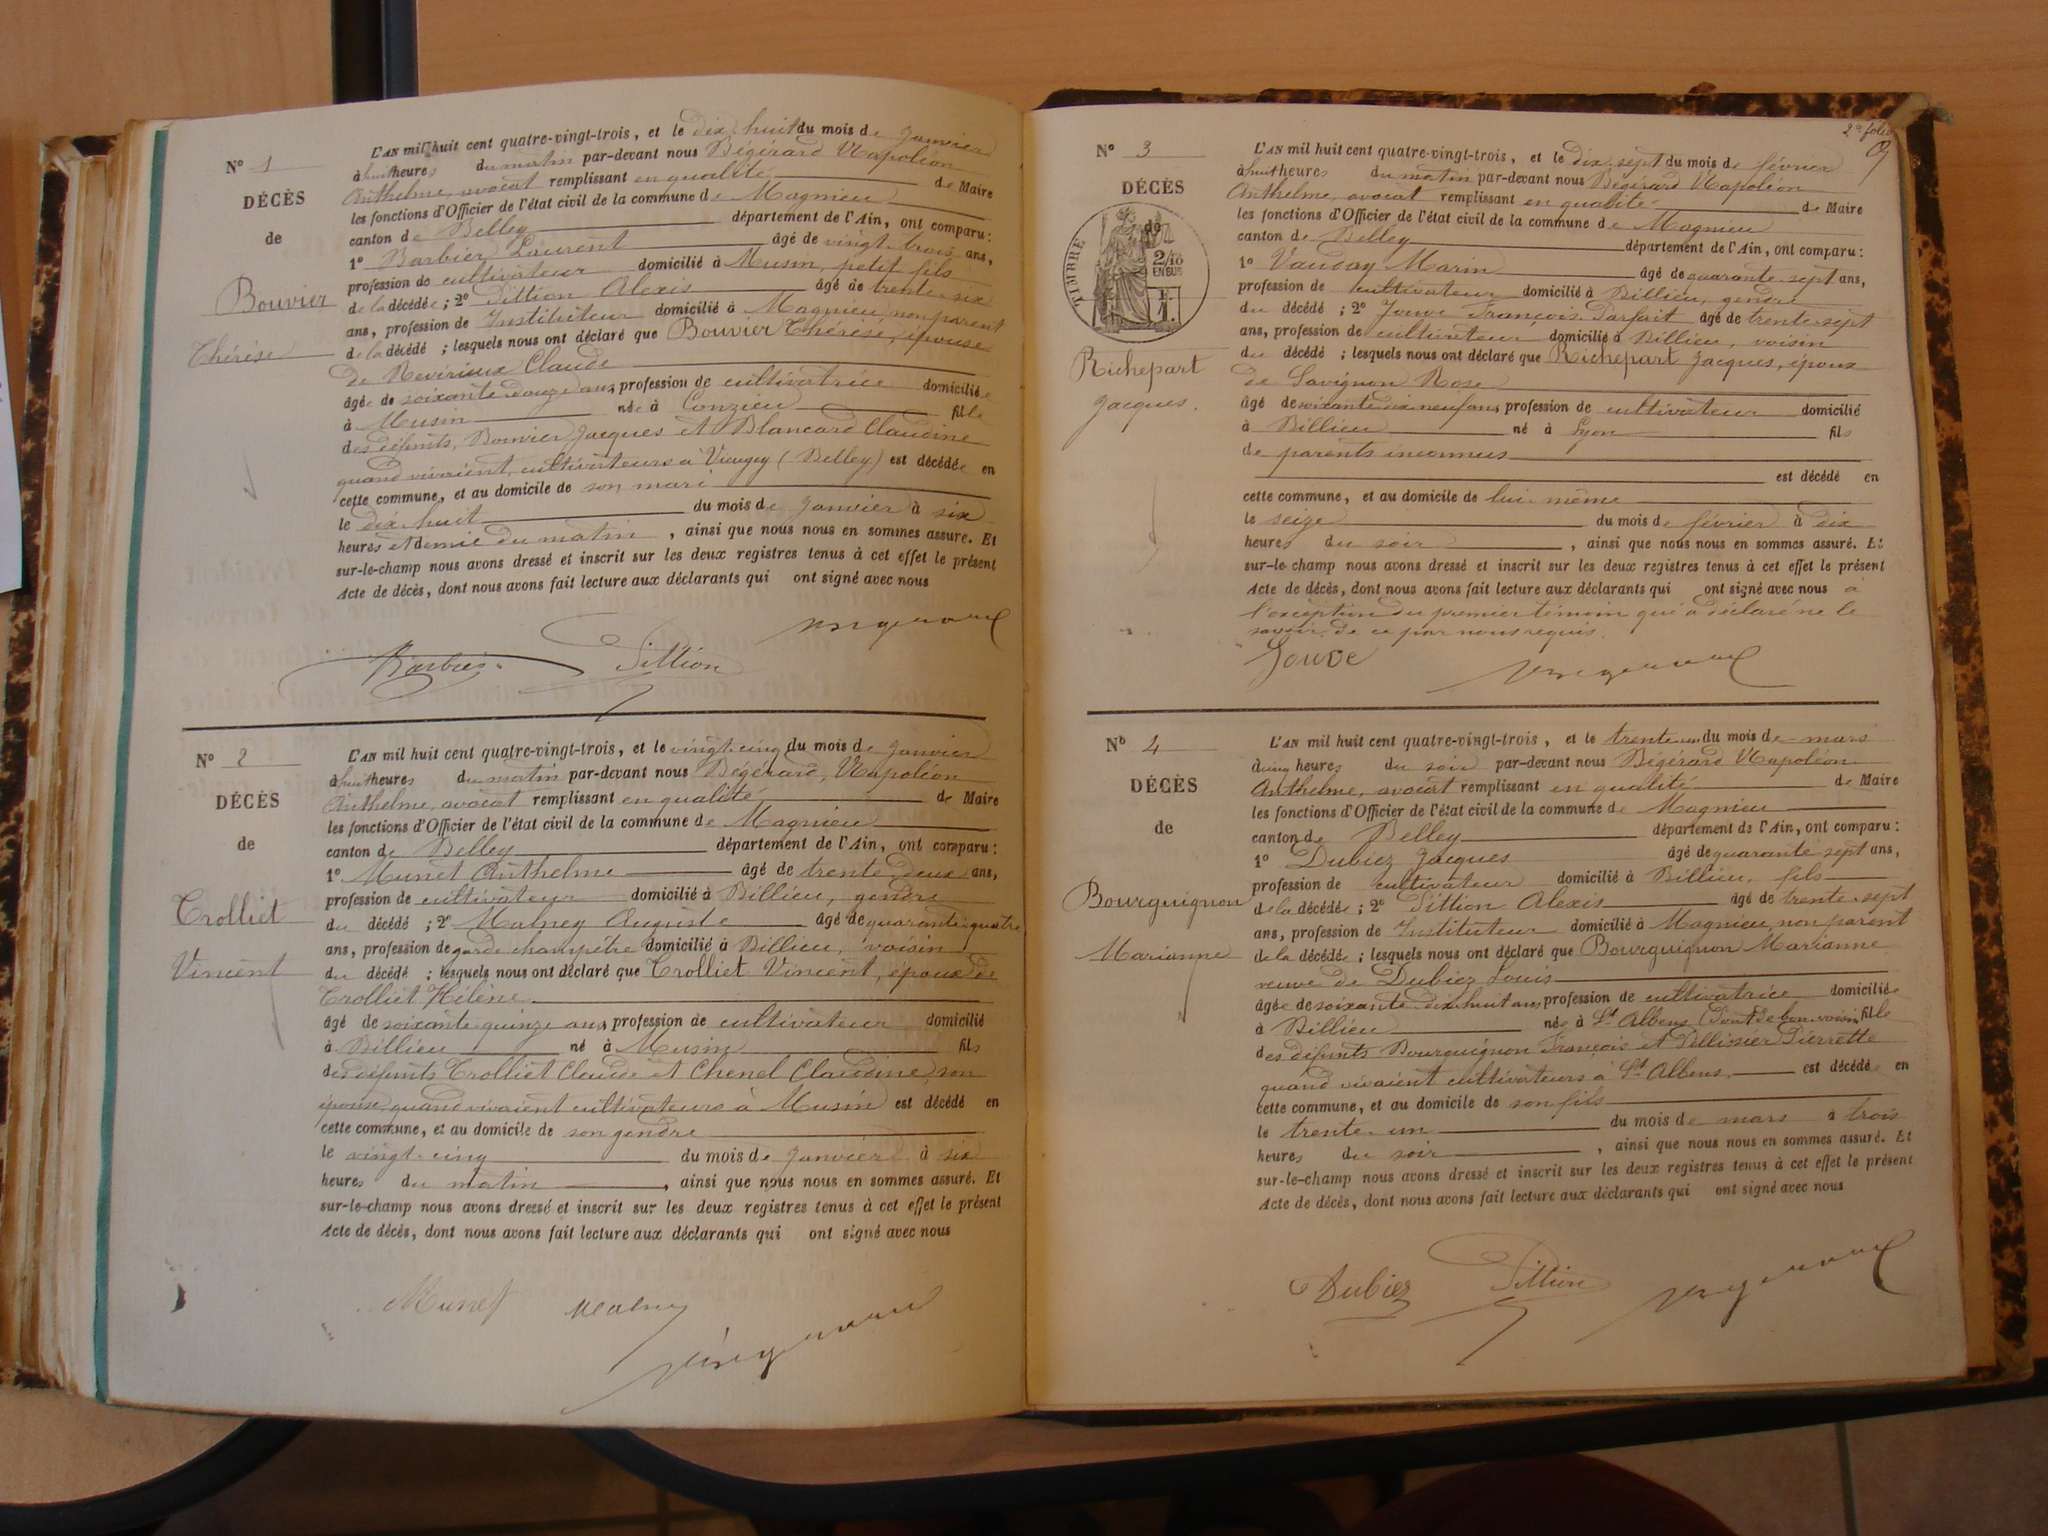 N° 1
DÉCÈS
de
Bouvier
Thérèse
L'AN mil huit cent quatre-vingt-trois, et le dix huit du mois de janvier
à huit heures du matin par-devant nous Bégérard Napoléon
Anthelme, avocat remplissant en qualité de Maire
les fonctions d'Officier de l'état civil de la commune de Magnieu
canton de Belley département de l'Ain, ont comparu :
1° Barbier Laurent âgé de vingt-trois ans,
profession de cultivateur domicilié à Musin, petit fils
de la décédée ; 2° Sittion Alexis âgé de trente-six
ans, profession de Instituteur domicilié à Magnieu, non parent
de la décédé ; lesquels nous ont déclaré que Bouvier Thérèse, épouse
de Revirieux Claude
âgée de soixante-douze ans, profession de cultivatrice domiciliée
à Musin née à Conzieu fille
des défunts, Bouvier Jacques et Blancard Claudine
quand vivaient, cultivateurs à (Belley) est décédée en
cette commune, et au domicile de son mari
le dix huit du mois de janvier à six
heures et demie du matin, ainsi que nous nous en sommes assuré. Et
sur-le-champ nous avons dressé et inscrit sur les deux registres tenus à cet effet le présent
Acte de décès, dont nous avons fait lecture aux déclarants qui ont signé avec nous
Barbier Sittion
N° 2
DÉCÈS
de
Trolliet
Vincent
L'AN mil huit cent quatre-vingt-trois, et le vingt-cinq du mois de janvier
à huit heures du matin par-devant nous Bégérard, Napoléon
Anthelme, avocat remplissant en qualité de Maire
les fonctions d'Officier de l'état civil de la commune de Magnieu
canton de Belley département de l'Ain, ont comparu :
1° Munet Anthelme âgé de trente-deux ans,
profession de cultivateur domicilié à Billieu, gendre
du décédé ; 2° Malney Auguste âgé de quarante-quatre
ans, profession de garde champêtre domicilié à Billieu, voisin
du décédé ; lesquels nous ont déclaré que Trolliet Vincent, époux de
Trolliet Hélène
âgé de soixante-quinze ans, profession de cultivateur domicilié
à Billieu né à Musin fils
des défunts Trolliet Claude et Chenel Claudine, son
épouse, quand vivaient cultivateurs à Musin est décédé en
cette commune, et au domicile de son gendre
le vingt-cinq du mois de janvier à six
heures du matin, ainsi que nous nous en sommes assuré. Et
sur-le-champ nous avons dressé et inscrit sur les deux registres tenus à cet effet le présent
Acte de décès, dont nous avons fait lecture aux déclarants qui ont signé avec nous
Munet Malney
2e folio
N° 3
DÉCÈS
de
TIMBRE
2/10
EN SUS
Richepart
Jacques.
L'AN mil huit cent quatre-vingt-trois, et le dix-sept du mois de février
à huit heures du matin par-devant nous Bégérard Napoléon
Anthelme, avocat remplissant en qualité de Maire
les fonctions d'Officier de l'état civil de la commune de Magnieu
canton de Belley département de l'Ain, ont comparu :
1° Vauday Marin âgé de quarante-sept ans,
profession de cultivateur domicilié à Billieu, gendre
du décédé ; 2° Jouve François Parfait âgé de trente-sept
ans, profession de cultivateur domicilié à Billieu, voisin
du décédé ; lesquels nous ont déclaré que Richepart Jacques, époux
de Savignon Rose
âgé de soixante-dix-neuf ans, profession de cultivateur domicilié
à Billieu né à Lyon fils
de parents inconnus
est décédé en
cette commune, et au domicile de lui-même
le seize du mois de février à dix
heures du soir, ainsi que nous nous en sommes assuré. Et
sur-le-champ nous avons dressé et inscrit sur les deux registres tenus à cet effet le présent
Acte de décès, dont nous avons fait lecture aux déclarants qui ont signé avec nous à
l'exception du premier témoin qui a déclaré ne le
savoir, de ce par nous requis.
Jouve
N° 4
DÉCÈS
de
Bourguignon
Marianne
L'AN mil huit cent quatre-vingt-trois, et le trente-un du mois de mars
à cinq heures du soir par-devant nous Bégérard Napoléon
Anthelme, avocat remplissant en qualité de Maire
les fonctions d'Officier de l'état civil de la commune de Magnieu
canton de Belley département de l'Ain, ont comparu :
1° Dubiez Jacques âgé de quarante-sept ans,
profession de cultivateur domicilié à Billieu, fils
de la décédée ; 2° Sittion Alexis âgé de trente-sept
ans, profession de Instituteur domicilié à Magnieu, non parent
de la décédée ; lesquels nous ont déclaré que Bourguignon Marianne
veuve de Dubiez Louis
âgée de soixante-dix-huit ans, profession de cultivatrice domiciliée
à Billieu née à St Albens (Pont de beauvoisin) fille
des défunts Bourguignon François et Pellissier Pierrette
quand vivaient cultivateurs à St Albens est décédée en
cette commune, et au domicile de son fils
le trente-un du mois de mars à trois
heures du soir, ainsi que nous nous en sommes assuré. Et
sur-le-champ nous avons dressé et inscrit sur les deux registres tenus à cet effet le présent
Acte de décès, dont nous avons fait lecture aux déclarants qui ont signé avec nous
Dubiez Sittion